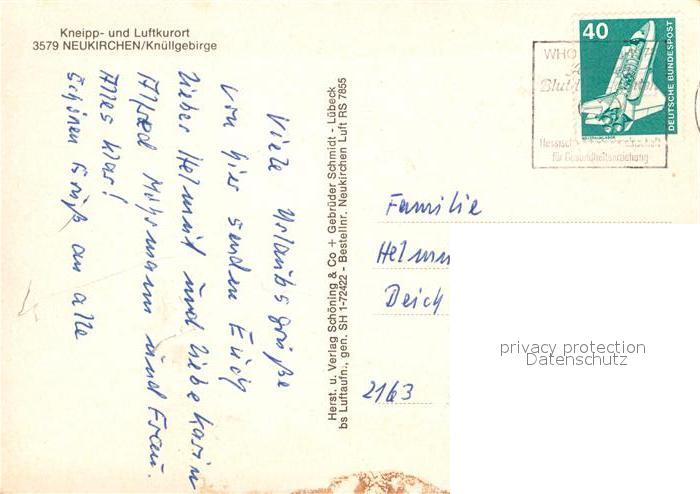 Kneipp- und Luftkurort
3579 NEUKIRCHEN/Knüllgebirge
Viele Urlaubsgrüße
von hier senden Euch
lieber Helmut und liebe Karin
Alfred Mohrmann und Frau.
Alles klar!
Schönen Gruß an alle
Herst. u. Verlag Schöning & Co + Gebrüder Schmidt - Lübeck
bs Luftaufn., gen. SH 1-72422 - Bestellnr. Neukirchen Luft RS 7855
40
DEUTSCHE BUNDESPOST
WHO
Blut
Hessisch
für Gesundheitserziehung
Familie
Helmu
Deich
2163
privacy protection
Datenschutz